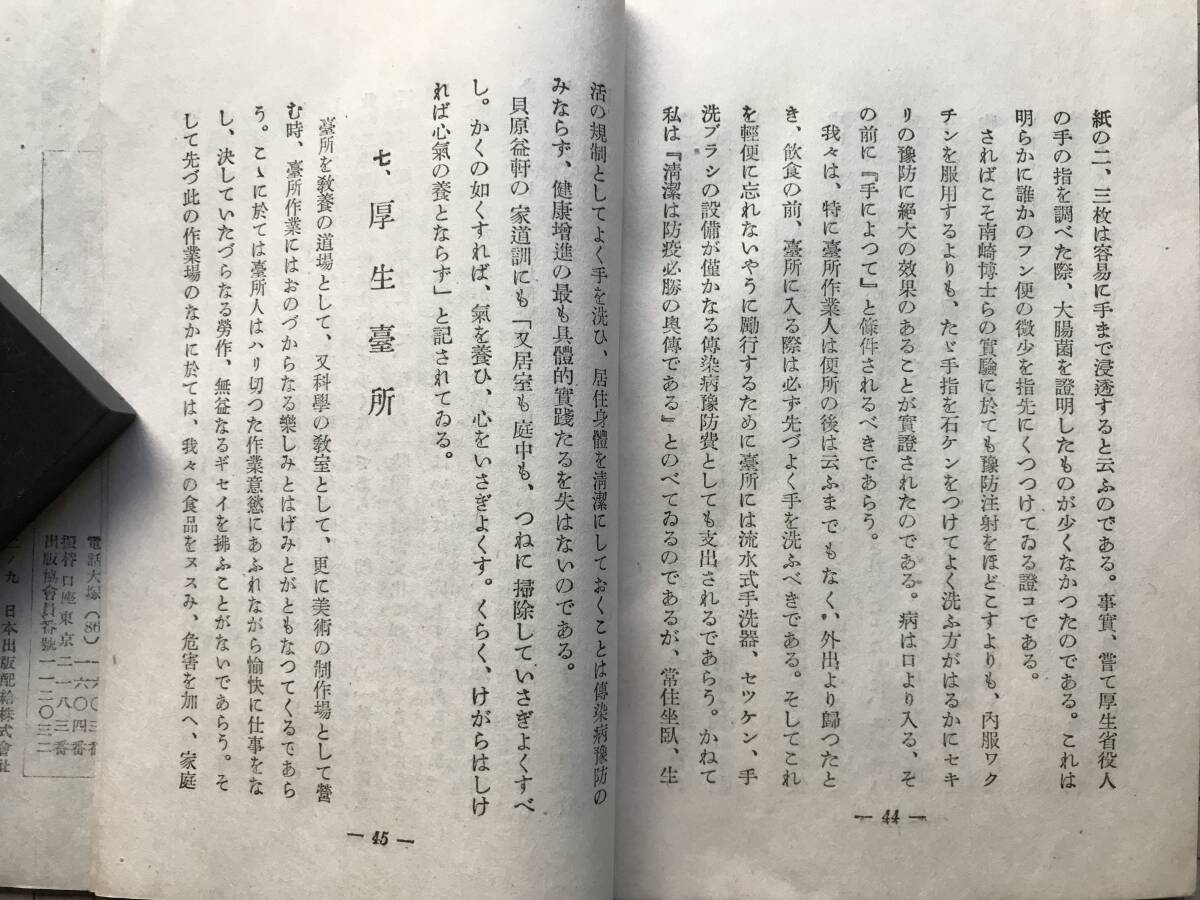 紙の二、三枚は容易に手まで浸透すると云ふのである。事實、嘗て厚生省役人
の手の指を調べた際、大腸菌を證明したものが少くなかつたのである。これは
明らかに誰かのフン便の微少を指先にくつつけてゐる證コである。
さればこそ南崎博士らの實驗に於ても豫防注射をほどこすよりも、內服ワク
チンを服用するよりも、たゞ手指を石ケンをつけてよく洗ふ方がはるかにセキ
リの豫防に絕大の效果のあることが實證されたのである。病は口より入る、そ
の前に『手によつて』と條件されるべきであらう。
我々は、特に臺所作業人は便所の後は云ふまでもなく、外出より歸つたと
き、飮食の前、臺所に入る際は必ず先づよく手を洗ふべきである。そしてこれ
を輕便に忘れないやうに勵行するために臺所には流水式手洗器、セツケン、手
洗ブラシの設備が僅かなる傳染病豫防費としても支出されるであらう。かねて
私は『淸潔は防疫必勝の奥傳である』とのべてゐるのであるが、常住坐臥、生
— 44 —
活の規制としてよく手を洗ひ、居住身體を淸潔にしておくことは傳染病豫防の
みならず、健康增進の最も具體的實踐たるを失はないのである。
貝原益軒の家道訓にも「又居室も庭中も、つねに掃除していさぎよくすべ
し。かくの如くすれば、氣を養ひ、心をいさぎよくす。くらく、けがらはしけ
れば心氣の養とならず」と記されてゐる。
七、厚生臺所
臺所を敎養の道場として、又科學の敎室として、更に美術の制作場として營
む時、臺所作業にはおのづからなる樂しみとはげみとがともなつてくるであら
う。こゝに於ては臺所人はハリ切つた作業意慾にあふれながら愉快に仕事をな
し、決していたづらなる勞作、無益なるギセイを拂ふことがないであらう。そ
して先づ此の作業場のなかに於ては、我々の食品をヌスみ、危害を加へ、家庭
— 45 —
電話大塚(86)一六〇三番
振替口座東京二一八三番
出版協會員番號一一二〇三二
ノ九 日本出版配給株式會社